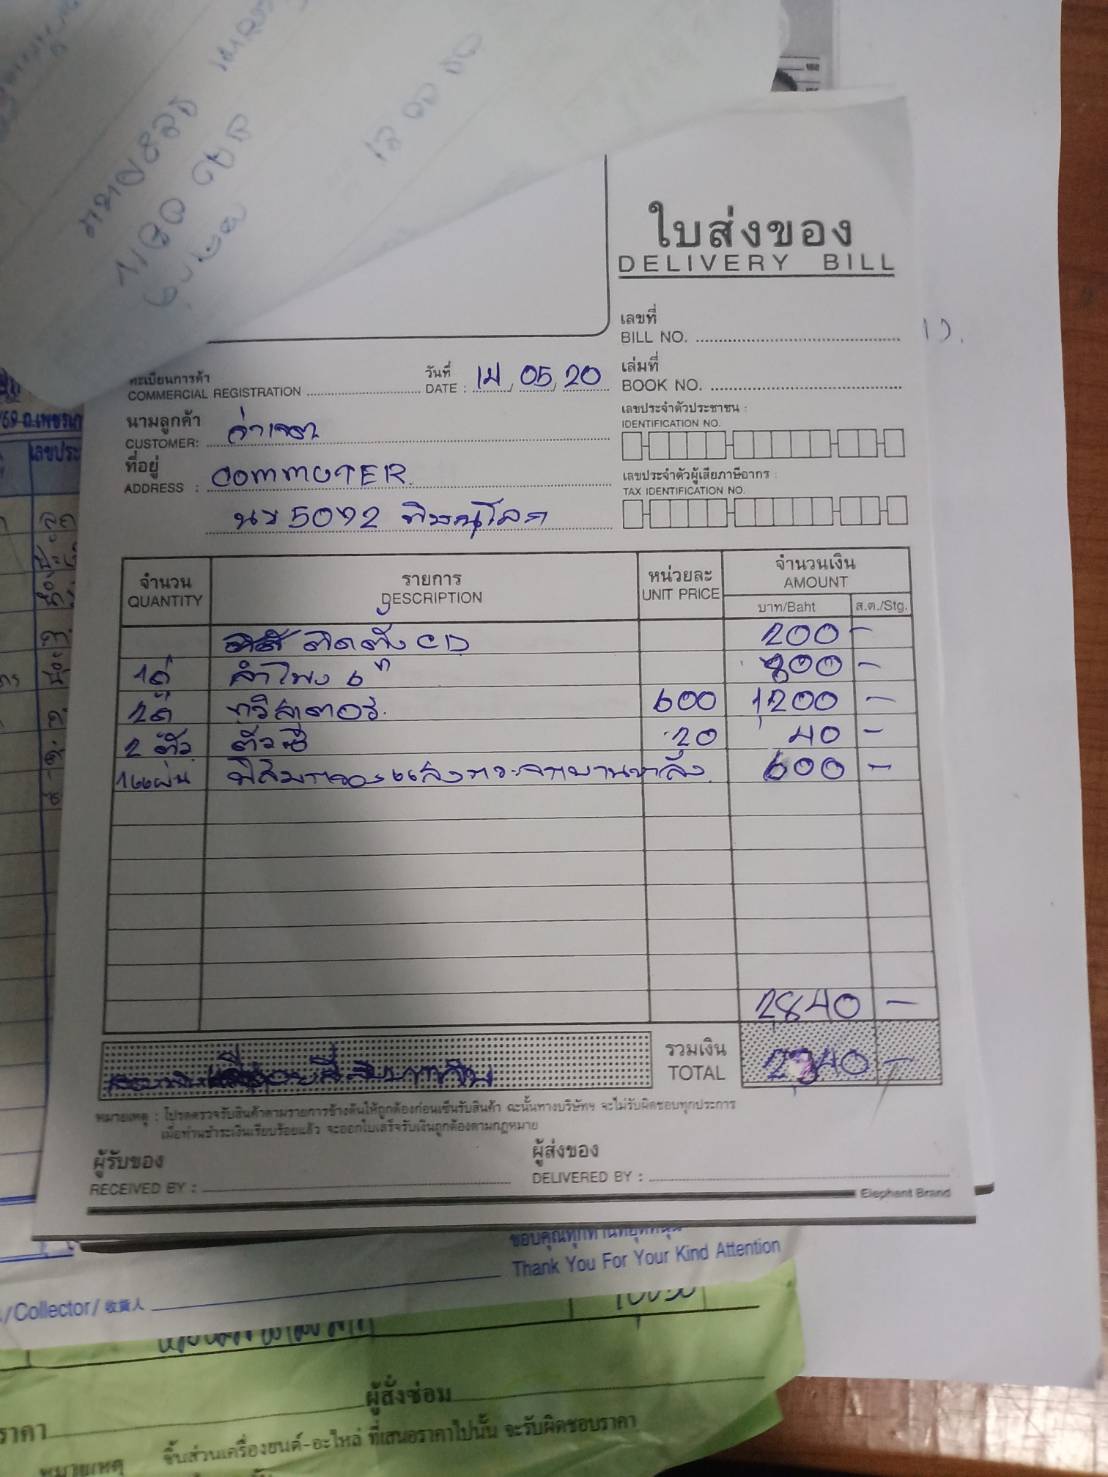 ใบส่งของ
DELIVERY BILL
เลขที่
BILL NO.
ทะเบียนการค้า
COMMERCIAL REGISTRATION
วันที่
DATE : 14 / 05 / 20
เล่มที่
BOOK NO.
นามลูกค้า
CUSTOMER:
เลขประจำตัวประชาชน :
IDENTIFICATION NO.
ที่อยู่
ADDRESS : COMMUTER
เลขประจำตัวผู้เสียภาษีอากร :
TAX IDENTIFICATION NO.
นข 5092 พิษณุโลก
จำนวน รายการ หน่วยละ จำนวนเงิน
QUANTITY DESCRIPTION UNIT PRICE AMOUNT
บาท/Baht ส.ต./Stg.
ติดตั้ง CD 200 -
1คู่ ลำโพง 6" 800 -
2คู่ ทวิสเตอร์ 600 1200 -
2 ตัว ตัวซี 20 40 -
1แผ่น ฟิล์มกรองแสงกระจกบานหลัง 600 -
2840 -
รวมเงิน
TOTAL 2840 -
หมายเหตุ : โปรดตรวจรับสินค้าตามรายการข้างต้นให้ถูกต้องก่อนเซ็นรับสินค้า ฉะนั้นทางบริษัทฯ จะไม่รับผิดชอบทุกประการ
เมื่อท่านชำระเงินเรียบร้อยแล้ว จะออกใบเสร็จรับเงินถูกต้องตามกฎหมาย
ผู้รับของ
RECEIVED BY :
ผู้ส่งของ
DELIVERED BY :
Elephant Brand
Thank You For Your Kind Attention
/Collector/ 收貨人
ผู้สั่งซ่อม
ราคา
หมายเหตุ ชิ้นส่วนเครื่องยนต์-อะไหล่ ที่เสนอราคาไปนั้น จะรับผิดชอบราคา